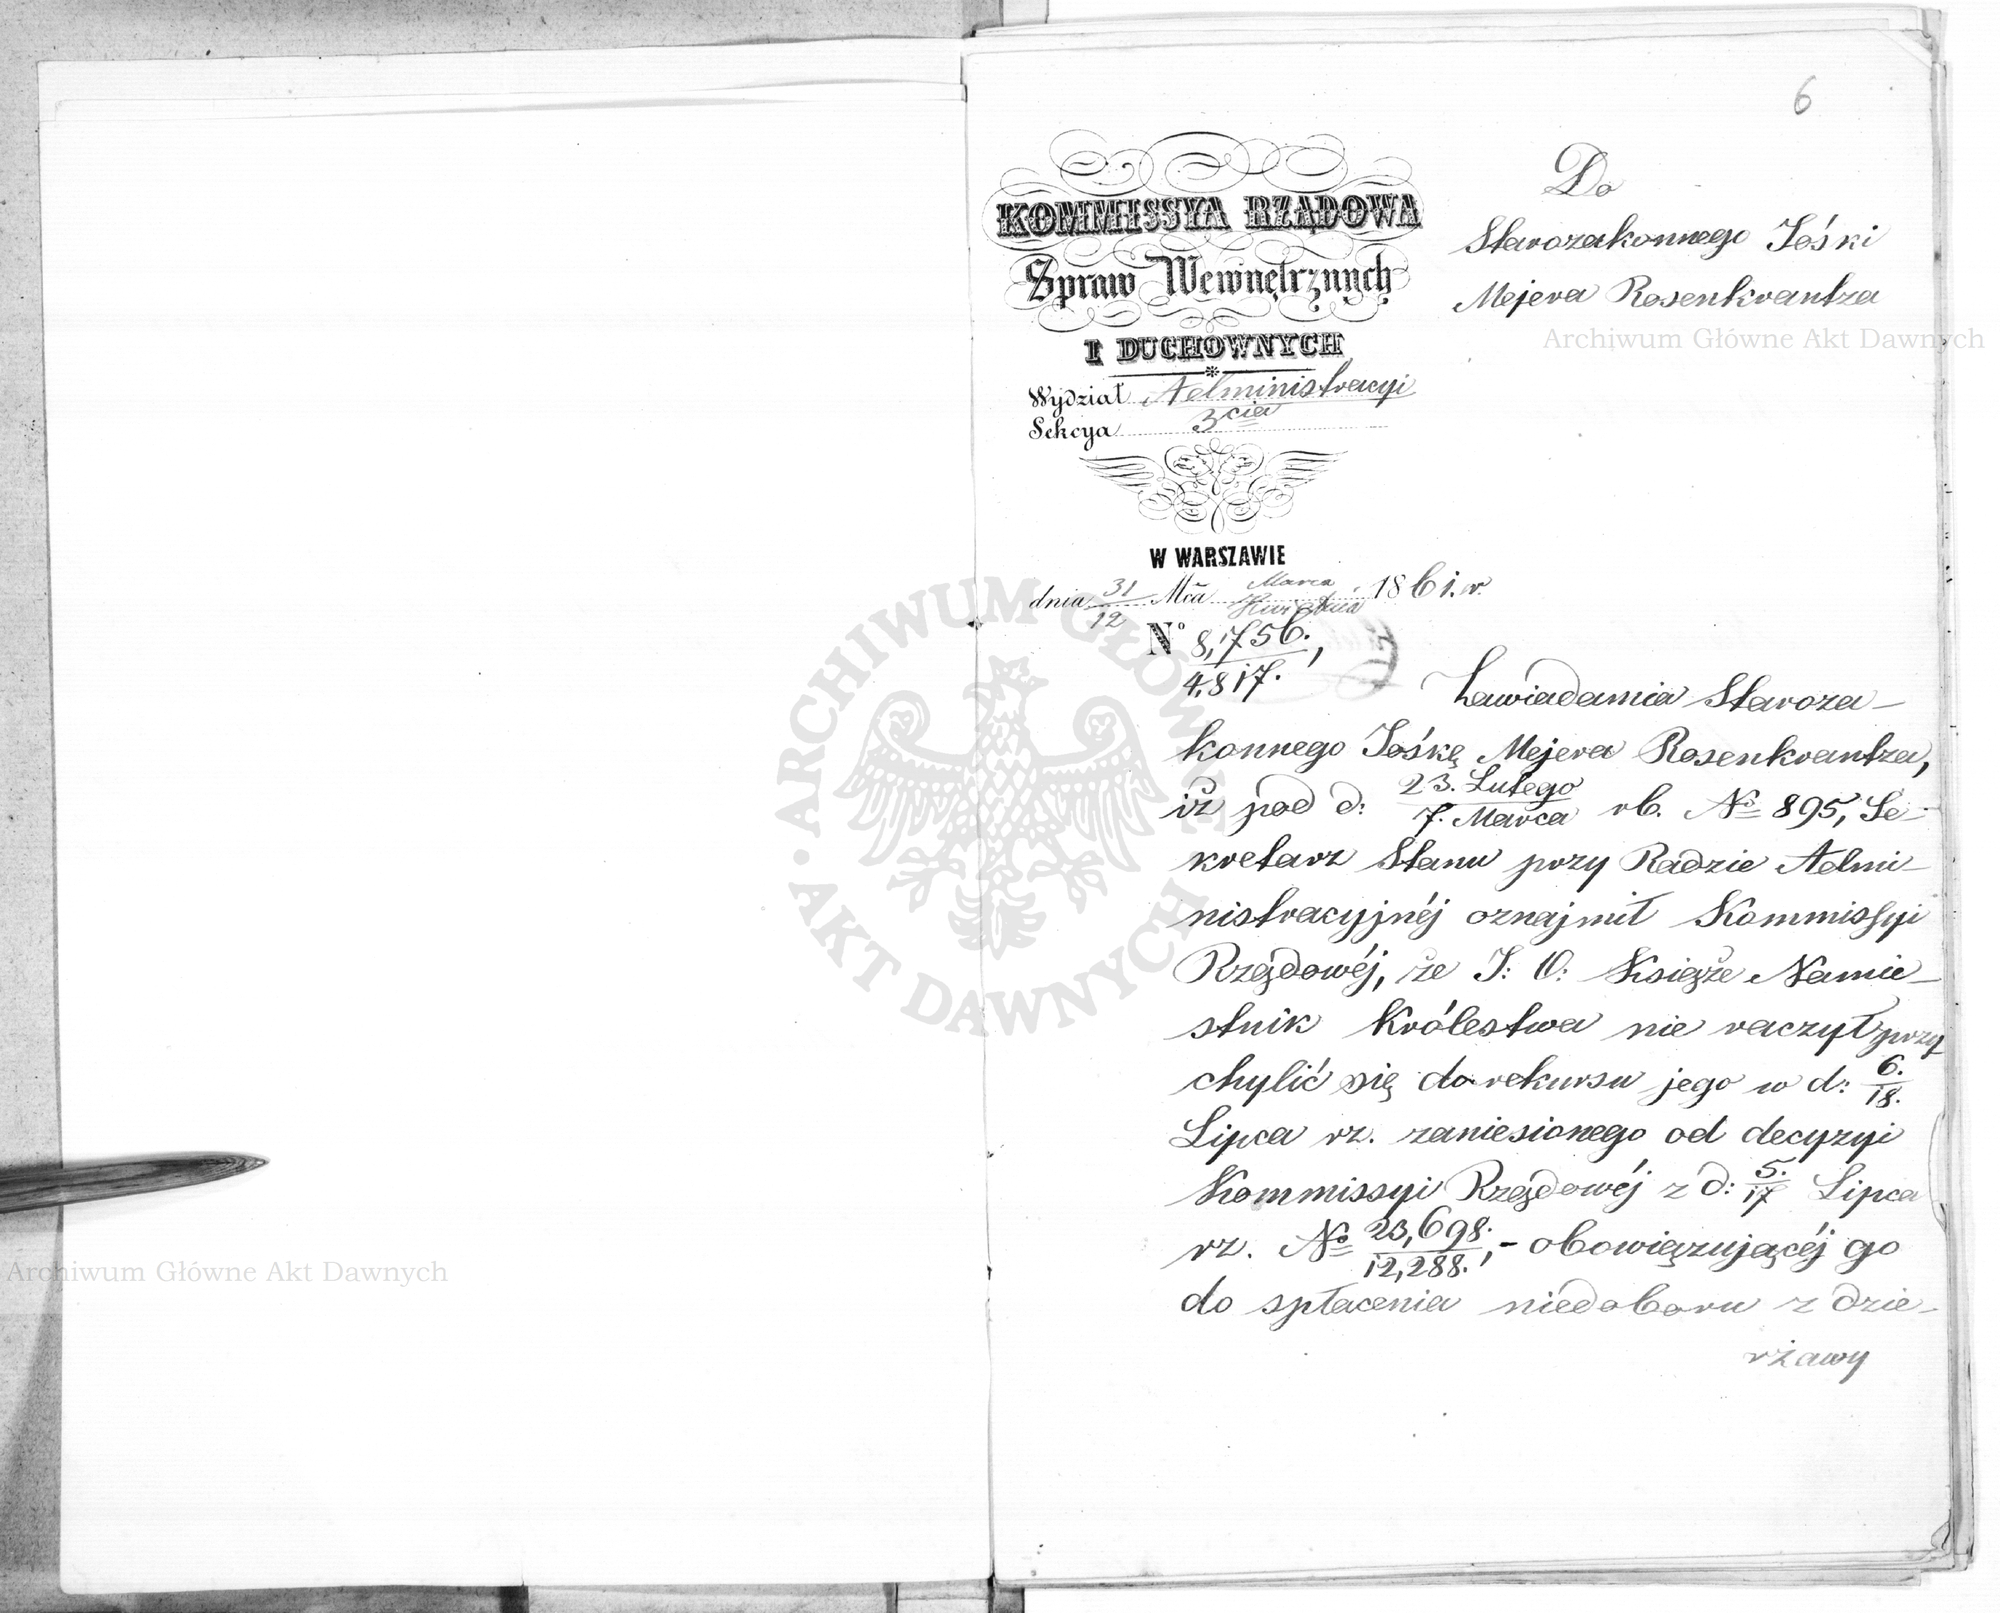 6
KOMMISSYA RZĄDOWA
Spraw Wewnętrznych
I DUCHOWNYCH
Wydział Administracyi
Sekcya 3cia
W WARSZAWIE
dnia 31/12 Mca Marca/Kwietnia 1861. r.
No 8,756./4,817.,
Do
Starozakonnego Jośki
Mejera Rosenkrantza
Zawiadamia Staroza-
konnego Jośkę Mejera Rosenkrantza,
iż pod d: 23. Lutego/7. Marca rb. No 895, Se-
kretarz Stanu przy Radzie Admi-
nistracyjnéj oznajmił Kommissyi
Rządowéj, że J: O: Książe Namie-
stnik Królestwa nie raczył przy
chylić się do rekursu jego w d: 6./18.
Lipca rz. zaniesionego od decyzyi
Kommissyi Rządowéj z d: 5./17 Lipca
rz. No 23,698./12,288., - obowiązującéj go
do spłacenia niedoboru z dzie-
rżawy
Archiwum Główne Akt Dawnych
Archiwum Główne Akt Dawnych
ARCHIWUM GŁÓWNE AKT DAWNYCH